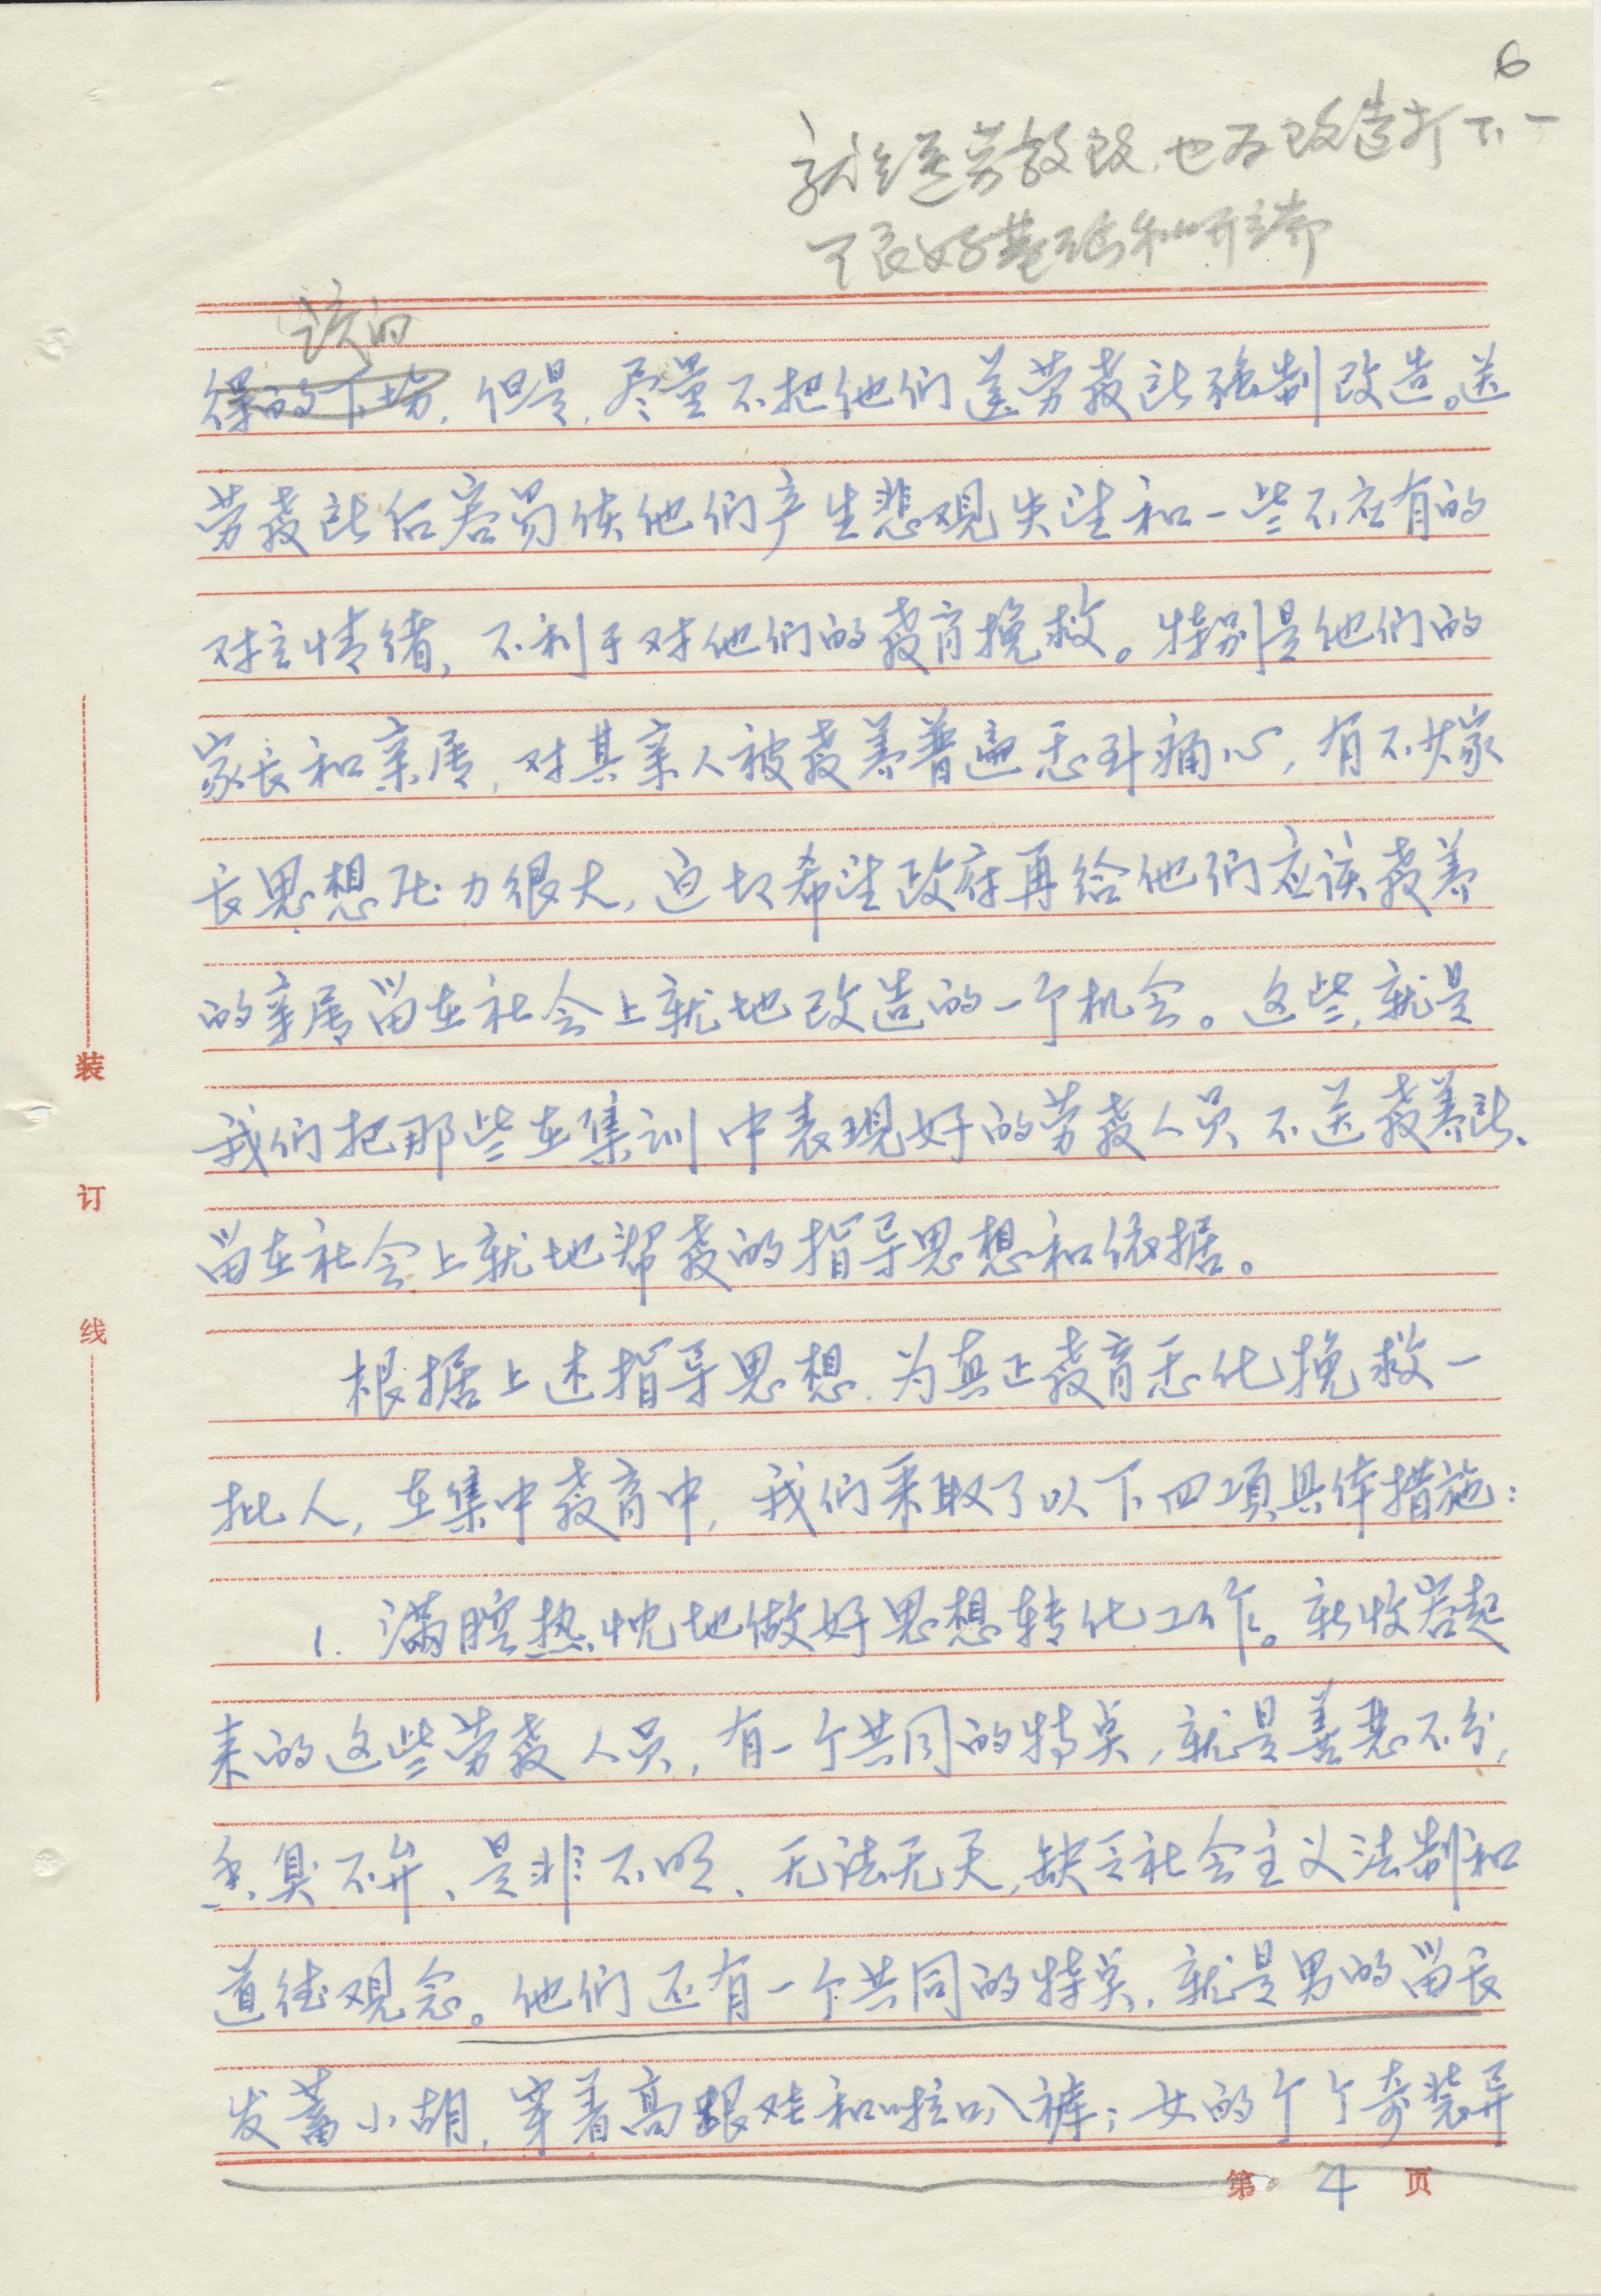 6
就是送劳教段,也为改造打下一
个良好基础和开端
该的
得的下场,但是,尽量不把他们送劳教所强制改造。送
劳教所后容易使他们产生悲观失望和一些不应有的
对立情绪,不利于对他们的教育挽救。特别是他们的
家长和亲属,对其亲人被教养普遍感到痛心,有不少家
长思想压力很大,迫切希望政府再给他们应该教养
的亲属留在社会上就地改造的一个机会。这些,就是
我们把那些在集训中表现好的劳教人员不送教养所、
留在社会上就地帮教的指导思想和依据。
根据上述指导思想,为真正教育感化挽救一
批人,在集中教育中,我们采取了以下四项具体措施:
1. 满腔热忱地做好思想转化工作。新收容起
来的这些劳教人员,有一个共同的特点,就是善恶不分,
香臭不弁、是非不明、无法无天,缺乏社会主义法制和
道德观念。他们还有一个共同的特点,就是男的留长
发蓄小胡,穿着高跟鞋和喇叭裤;女的个个奇装异
第4页
装
订
线